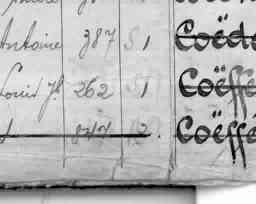 Antoine 387 S 1 Coëde
Louis Jh 262 S 1 Coëffé
847 12 Coëffé